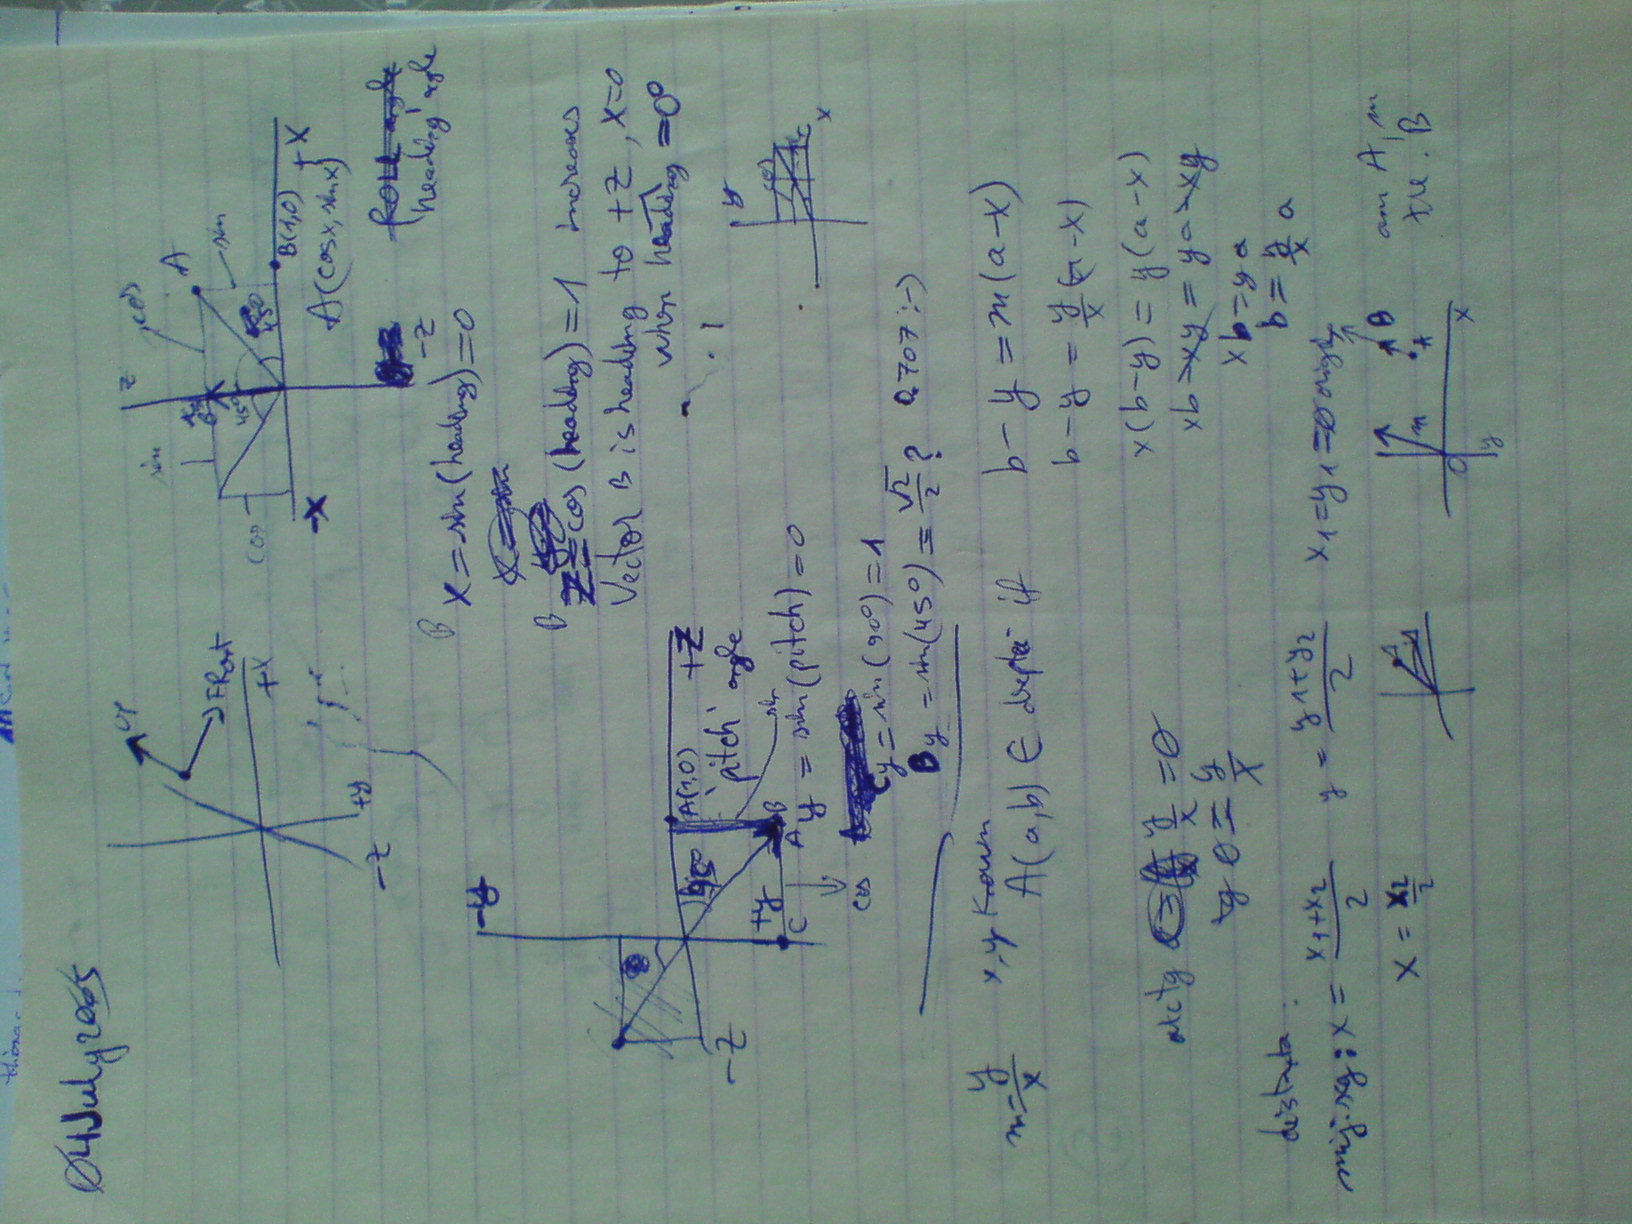 04July2005
up
Front
+X
+y
-Z
z
A
sin
sin
cos
45°
45°
B(1,0)
+X
-X
-Z
A(cosx, sinx)
'heading' angle
B x = sin(heading) = 0
B z = cos(heading) = 1 increases
Vector B is heading to +Z, x=0
when heading = 0°
y
x
-y
A(1,0)
+Z
'pitch' angle
sin
-Z
+y
C
B
cos
A y = sin(pitch) = 0
C y = sin(90°) = 1
B y = sin(45°) = √2/2 ? 0.707 :-)
m = y/x
x, y known
A(a,b) ∈ dreptei if
b - y = m(a-x)
b - y = y/x (a-x)
x(b-y) = y(a-x)
xb - xy = ya - xy
xb = ya
b = y/x a
y/x = 0
distanta
mij. seg: x = x1+x2/2
y = y1+y2/2
x1 = y1 = 0 origin
x = x2/2
m
B
A
O
x
y
am A, m
B